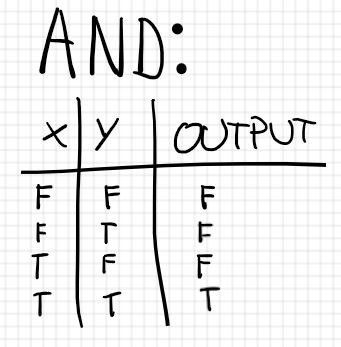 AND:
X Y OUTPUT
F F F
F T F
T F F
T T T